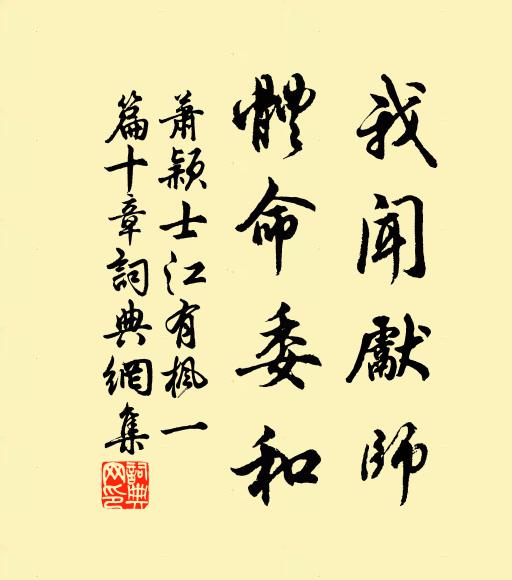 我聞獻師
體命委和
蕭穎士江有楓一
篇十章詞典網集
詞典网印